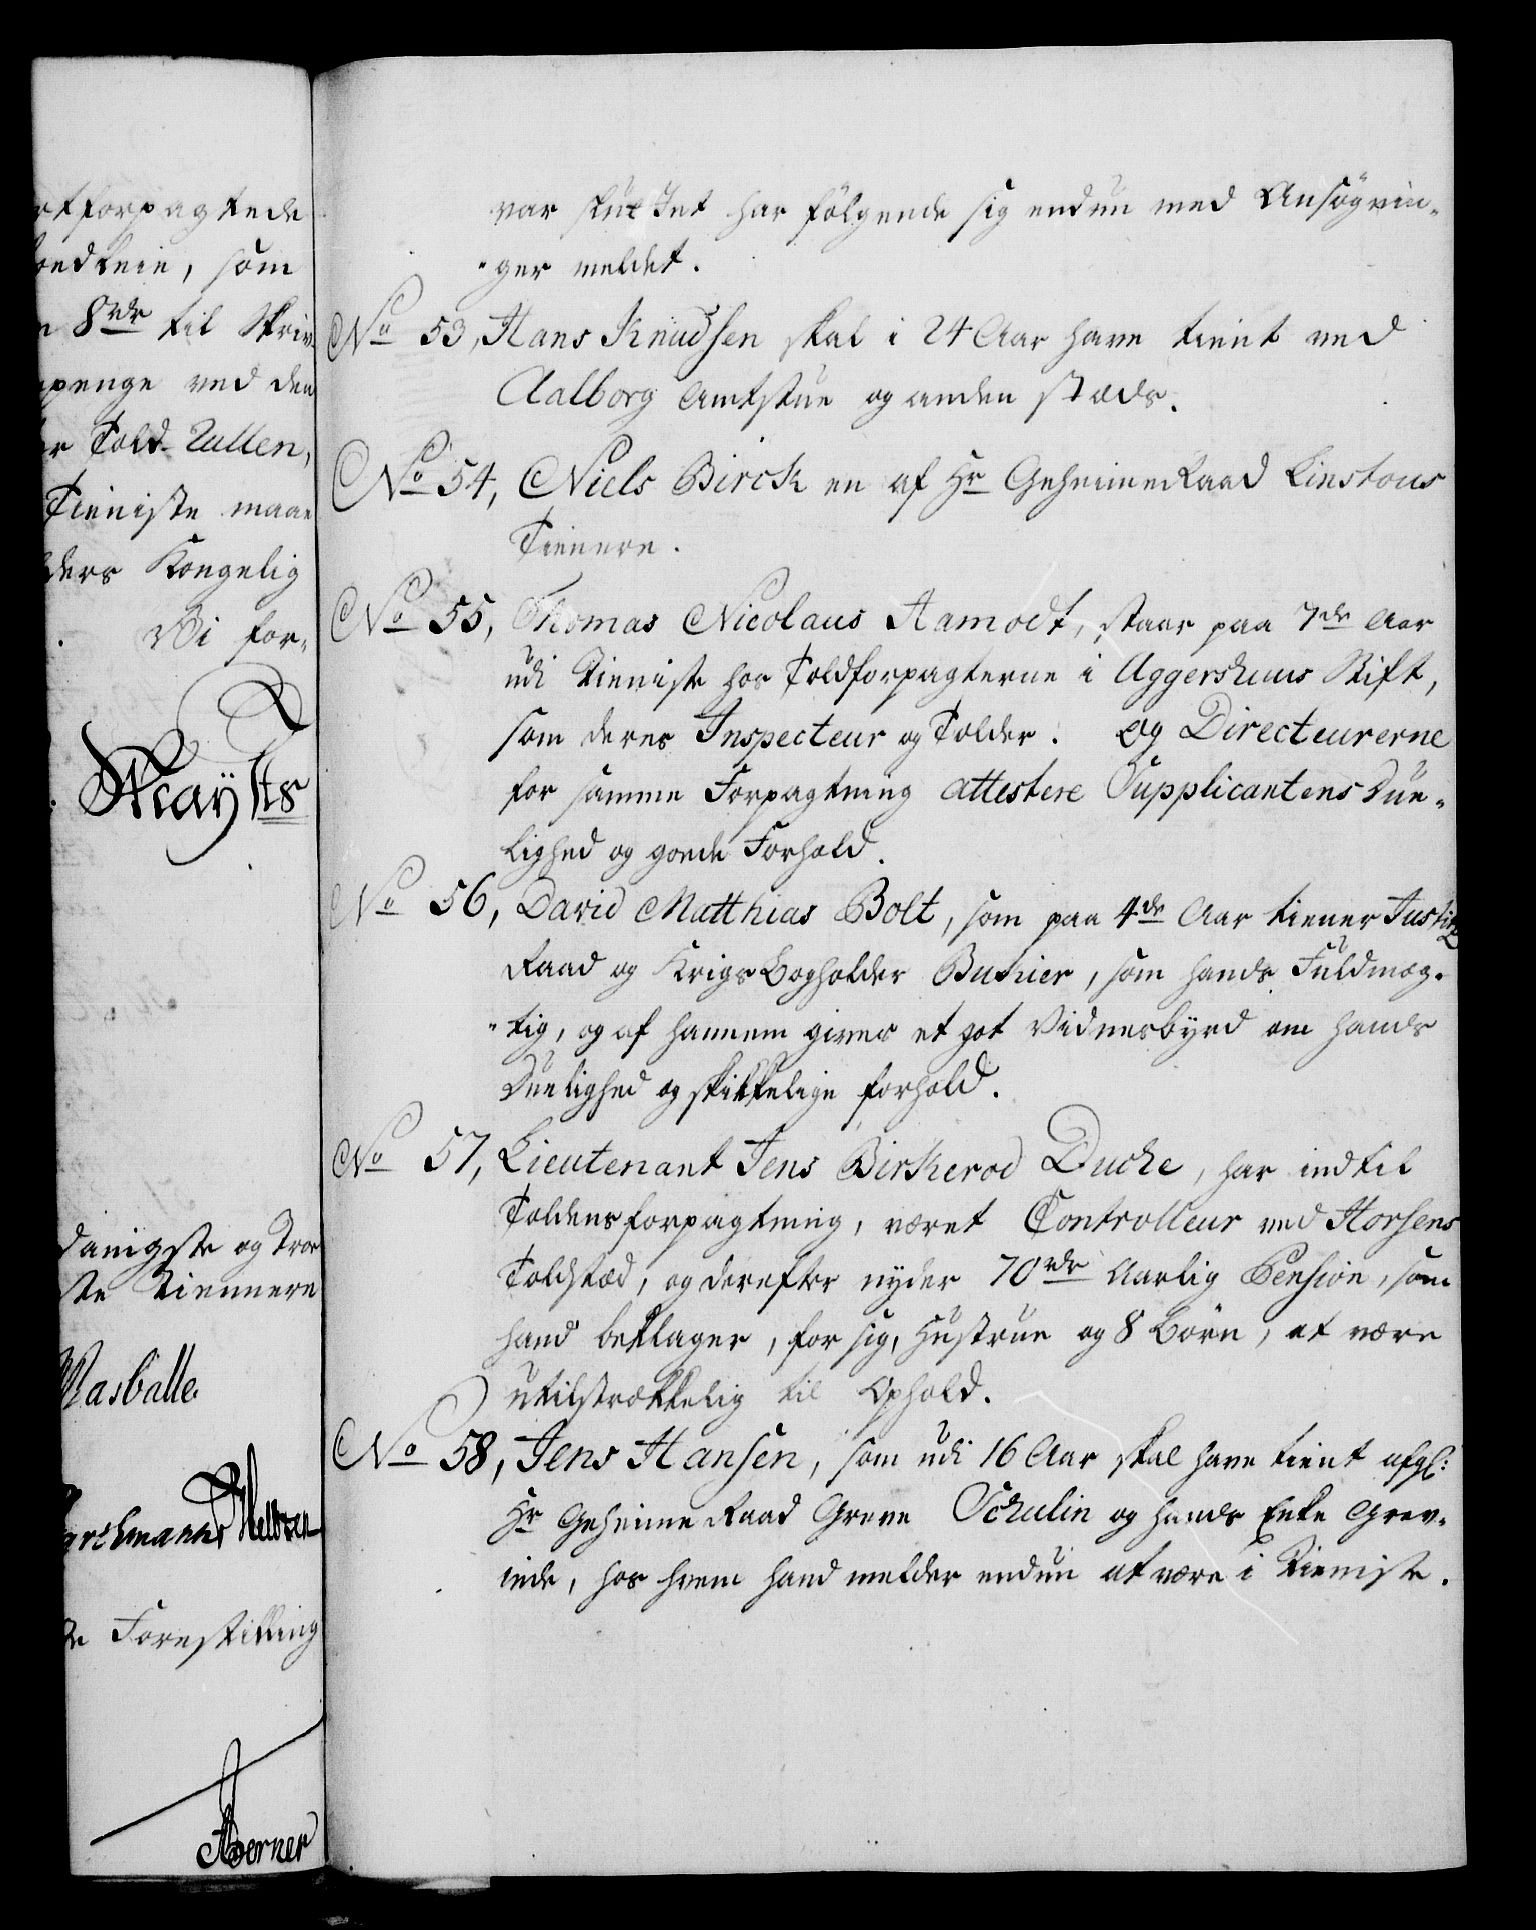 rtforpagtede
som
8rdr til Skriv
penge ved den
Told Rullen,
Tieniste maae
ders Kongelig
Vi for-
Mayts
danigste og Troe
ste tiennere
Masballe.
Forestilling
var sluttet har fölgende sig endnu med Ansögnin-
-ger meldet.
No 53, Hans Knudsen skal i 24 Aar have tient ved
Aalborg Amtstue og anden stæds.
No 54, Niels Birck en af Hr Geheime Raad Linstous
Tienere.
No 55, Thomas Nicolaus Aamodt, staar paa 7de Aar
udi Tieniste hos Toldforpagterne i Aggershuus Stift,
som deres Inspecteur og Tolder. og Directeurerne
for samme Forpagtning attestere Supplicantens Due-
lighed og goede Forhold.
No 56, David Matthias Bolt, som paa 4de Aar tiener Justitz
Raad og Krigs Bogholder Butzier, som hands Fuldmæg-
-tig, og af hannem gives et got Vidnesbyrd om hands
Duelighed og skikkelige forhold.
No 57, Lieutenant Jens Birkerod Ducke, har indtil
Toldens forpagtning, været Controlleur ved Horsens
Toldsted, og derefter nyder 70rdr Aarlig Pension, som
hand beklager, for sig, Hustrue og 8 Börn, at være
utilstrækkelig til Ophold.
No 58, Jens Hansen, som udi 16 Aar skal have tient afgl:
Hr Geheime Raad Greve Schulin og hands Enke Grev-
inde, hos hvem hand melder endnu at være i Tieniste.